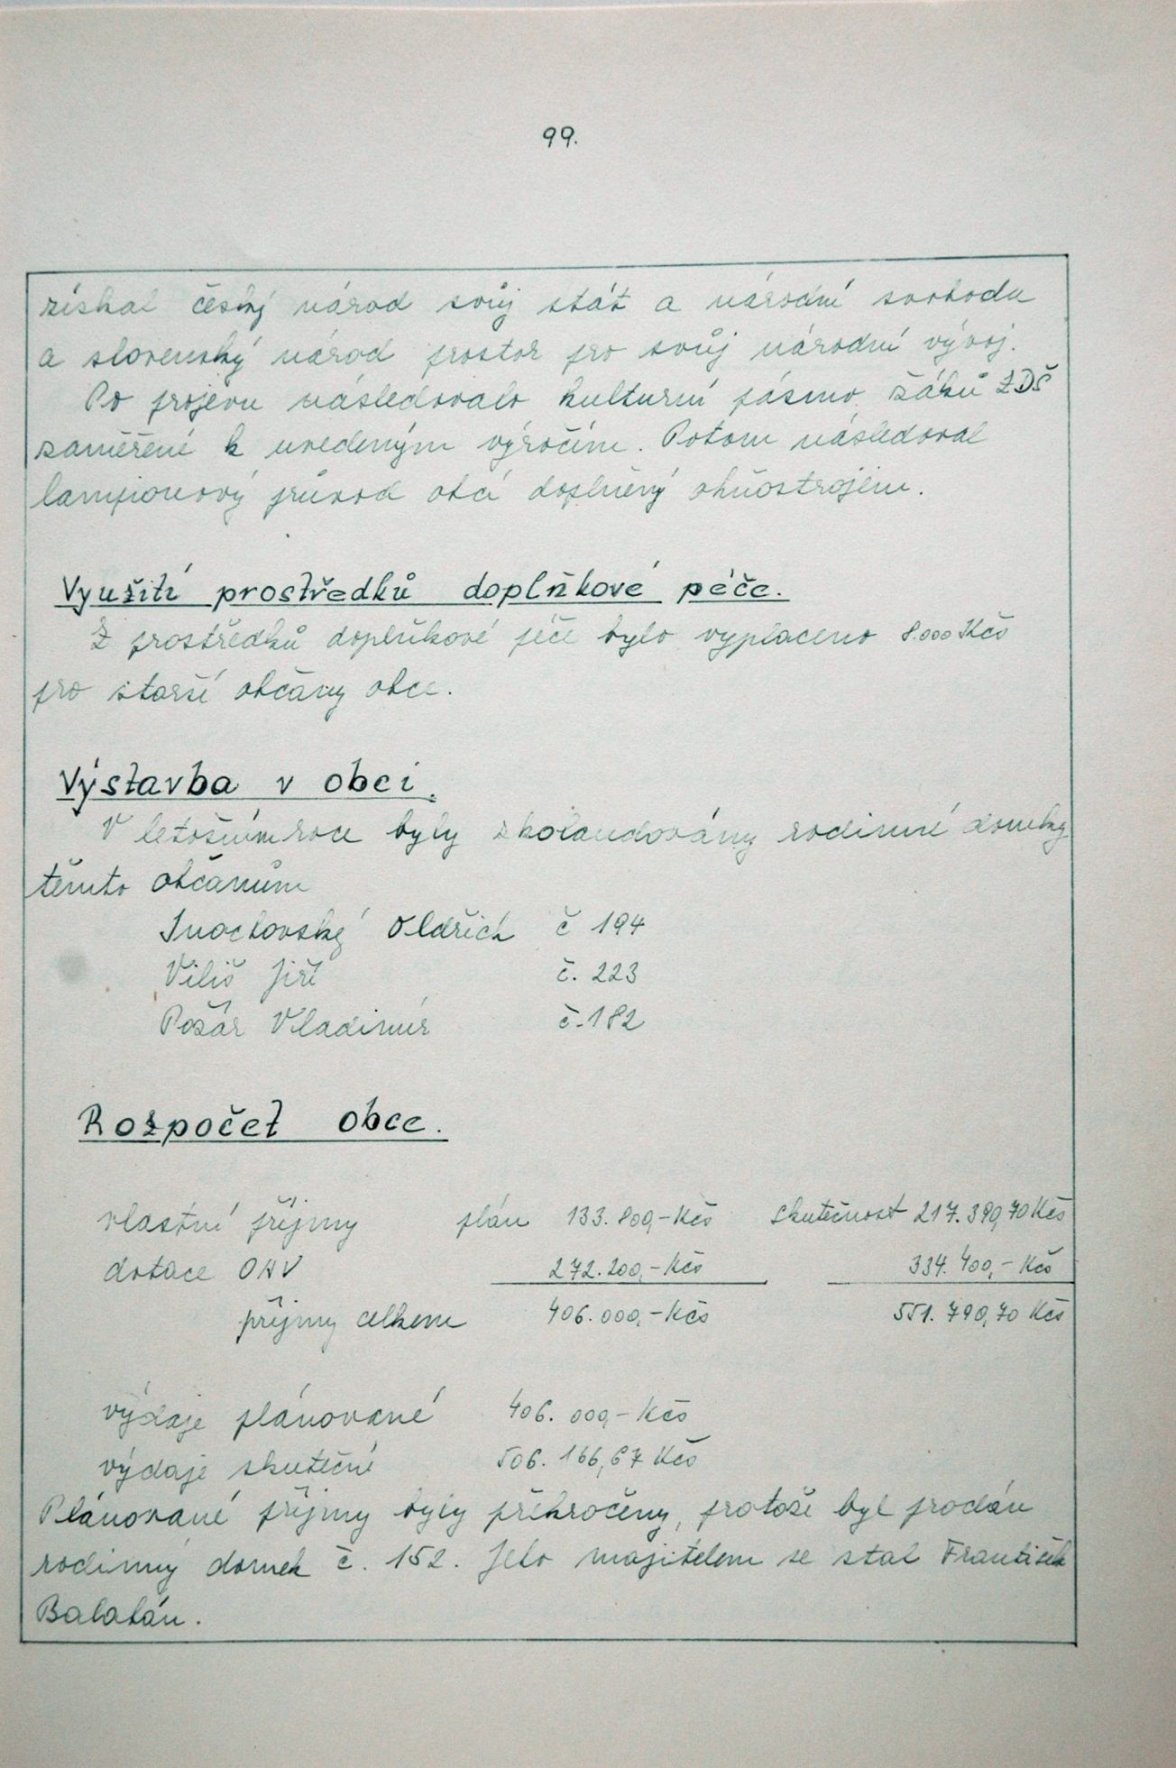 99.
získal český národ svůj stát a národní svobodu
a slovenský národ prostor pro svůj národní vývoj.
Po projevu následovalo kulturní pásmo žáků ZDŠ
zaměřené k uvedeným výročím. Potom následoval
lampionový průvod obcí doplněný ohňostrojem.
Využití prostředků doplňkové péče.
Z prostředků doplňkové péče bylo vyplaceno 8.000 Kčs
pro starší občany obce.
Výstavba v obci.
V letošním roce byly zkolaudovány rodinné domky
těmto občanům
Oldřich č 194
Viliš Jiří č. 223
Požár Vladimír č. 182
Rozpočet obce.
vlastní příjmy plán 133.800,- Kčs skutečnost 217.390,70 Kčs
dotace ONV 272.200,- Kčs 334.400,- Kčs
příjmy celkem 406.000,- Kčs 551.790,70 Kčs
výdaje plánované 406.000,- Kčs
výdaje skutečné 506.166,67 Kčs
Plánované příjmy byly překročeny, protože byl prodán
rodinný domek č. 152. Jeho majitelem se stal František
Balabán.